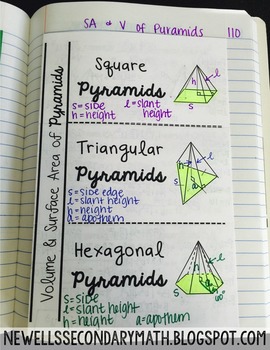 SA & V of Pyramids 110
Volume & Surface Area of Pyramids
Square
Pyramids
s = side l = slant
h = height height
h
l
s
Triangular
Pyramids
s = side edge
l = slant height
h = height
a = apothem
h
l
a
s
Hexagonal
Pyramids
s = side
l = slant height
h = height a = apothem
l
a
s
60°
NEWELLSSECONDARYMATH.BLOGSPOT.COM